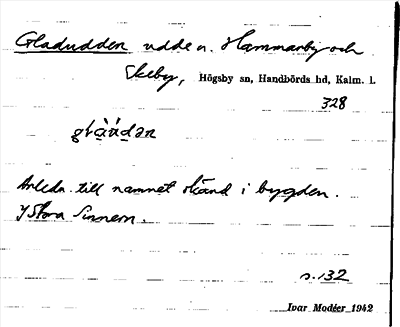 Gladudden udde u. Hammarby och
Ekeby, Högsby sn, Handbörds hd, Kalm. l.
328
Anledn. till namnet okänd i bygden.
I Stora Sinnern.
s. 132
Ivar Modéer 1942